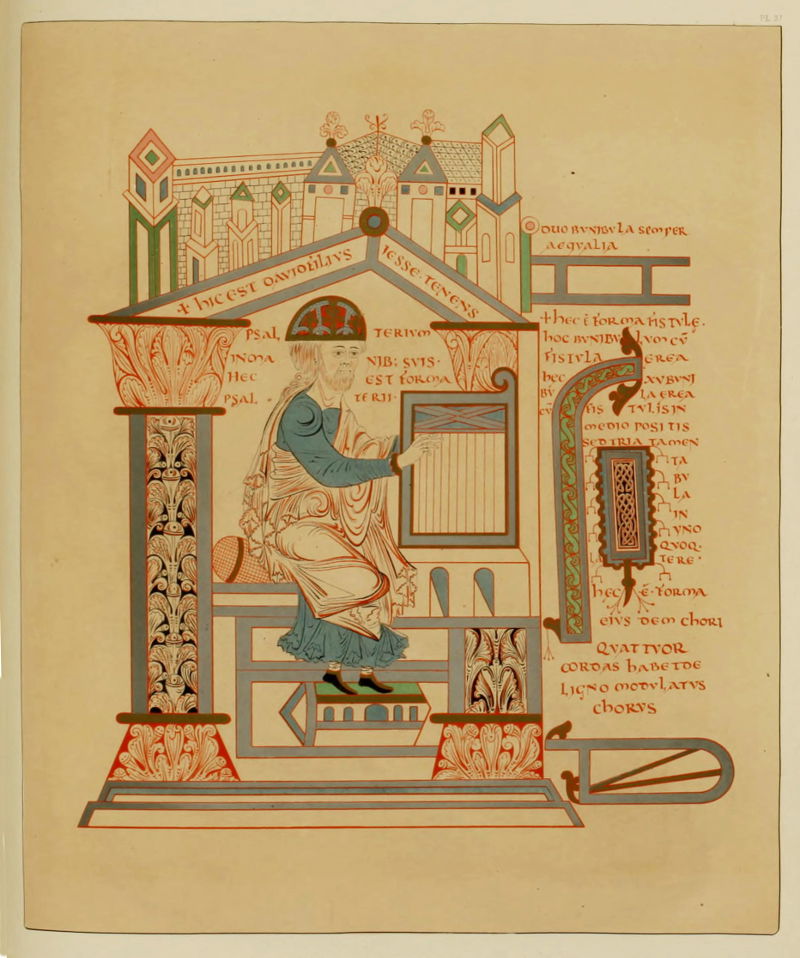 PL. 37
+ HIC EST DAVID FILIVS IESSE · TENENS
PSAL TERIVM
IN MA NIB; SVIS ·
HEC EST FORMA
PSAL TERII ·
DUO BUNIBULA SEMPER
AEQUALIA
+ HEC E FORMA FISTULE ·
HOC BUNIBU LUM CU
FISTULA EREA
HEC
BU LA EREA
CU FIS TULIS IN
MEDIO POSITIS
SED IRIA TAMEN
TA
BU
LA
IN
UNO
QUOQ·
TERE ·
HEC E · FORMA
EIUS DEM CHORI
QUATTUOR
CORDAS HABET DE
LIGNO MODULATUS
CHORUS